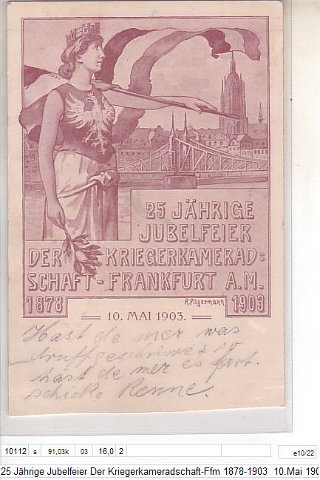 25 JÄHRIGE
JUBELFEIER
DER KRIEGERKAMERAD=
SCHAFT-FRANKFURT A.M.
1878 1903
10. MAI 1903.
Häst de mer was
druff geschriwe so
häst de mer es gart
schicke Kenne.
10112 s 91,03k 03 16,0 2 e10/22
25 Jährige Jubelfeier Der Kriegerkameradschaft-Ffm 1878-1903 10.Mai 190